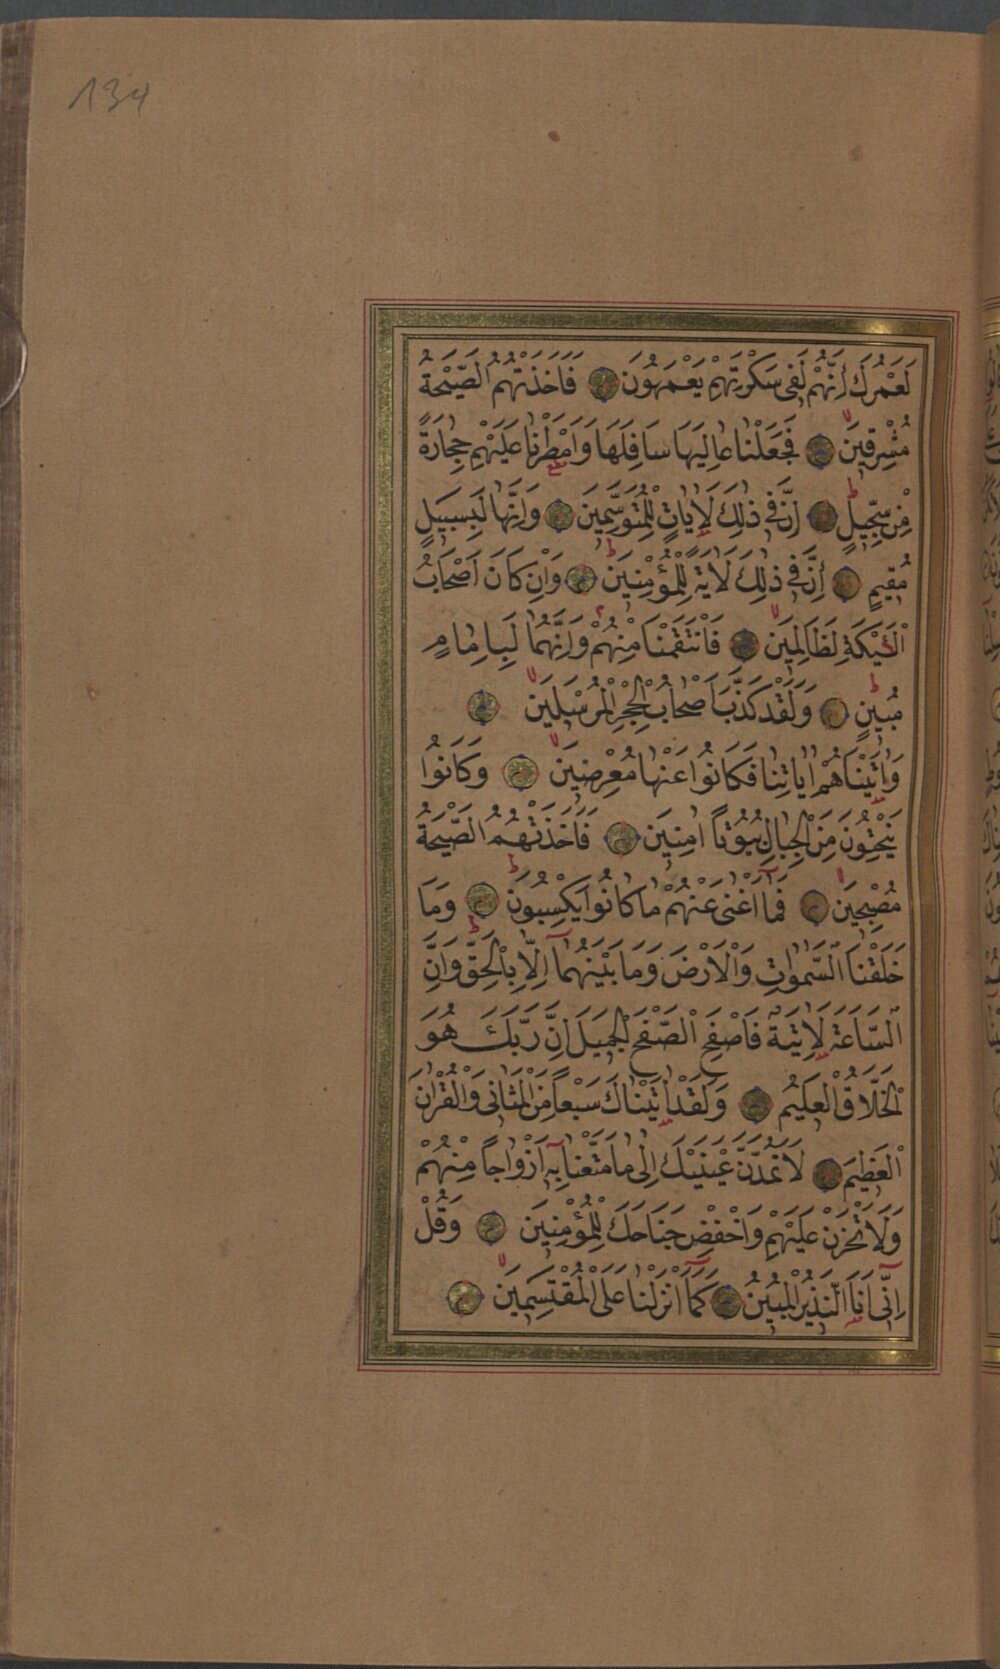 134
لَعَمْرُكَ اِنَّهُمْ لَفِى سَكْرَتِهِمْ يَعْمَهُونَ فَاَخَذَتْهُمُ الصَّيْحَةُ
مُشْرِقِينَ فَجَعَلْنَا عَالِيَهَا سَافِلَهَا وَاَمْطَرْنَا عَلَيْهِمْ حِجَارَةً
مِنْ سِجِّيلٍ اِنَّ فِى ذٰلِكَ لَاٰيَاتٍ لِلْمُتَوَسِّمِينَ وَاِنَّهَا لَبِسَبِيلٍ
مُقِيمٍ اِنَّ فِى ذٰلِكَ لَاٰيَةً لِلْمُؤْمِنِينَ وَاِنْ كَانَ اَصْحَابُ
الْاَيْكَةِ لَظَالِمِينَ فَانْتَقَمْنَا مِنْهُمْ وَاِنَّهُمَا لَبِاِمَامٍ
مُبِينٍ وَلَقَدْ كَذَّبَ اَصْحَابُ الْحِجْرِ الْمُرْسَلِينَ
وَاٰتَيْنَاهُمْ اٰيَاتِنَا فَكَانُوا عَنْهَا مُعْرِضِينَ وَكَانُوا
يَنْحِتُونَ مِنَ الْجِبَالِ بُيُوتًا اٰمِنِينَ فَاَخَذَتْهُمُ الصَّيْحَةُ
مُصْبِحِينَ فَمَٓا اَغْنٰى عَنْهُمْ مَا كَانُوا يَكْسِبُونَ وَمَا
خَلَقْنَا السَّمٰوَاتِ وَالْاَرْضَ وَمَا بَيْنَهُمَٓا اِلَّا بِالْحَقِّ وَاِنَّ
السَّاعَةَ لَاٰتِيَةٌ فَاصْفَحِ الصَّفْحَ الْجَمِيلَ اِنَّ رَبَّكَ هُوَ
الْخَلَّاقُ الْعَلِيمُ وَلَقَدْ اٰتَيْنَاكَ سَبْعًا مِنَ الْمَثَانِى وَالْقُرْاٰنَ
الْعَظِيمَ لَا تَمُدَّنَّ عَيْنَيْكَ اِلٰى مَا مَتَّعْنَا بِهِٓ اَزْوَاجًا مِنْهُمْ
وَلَا تَحْزَنْ عَلَيْهِمْ وَاخْفِضْ جَنَاحَكَ لِلْمُؤْمِنِينَ وَقُلْ
اِنِّٓى اَنَا النَّذِيرُ الْمُبِينُ كَمَٓا اَنْزَلْنَا عَلَى الْمُقْتَسِمِينَ